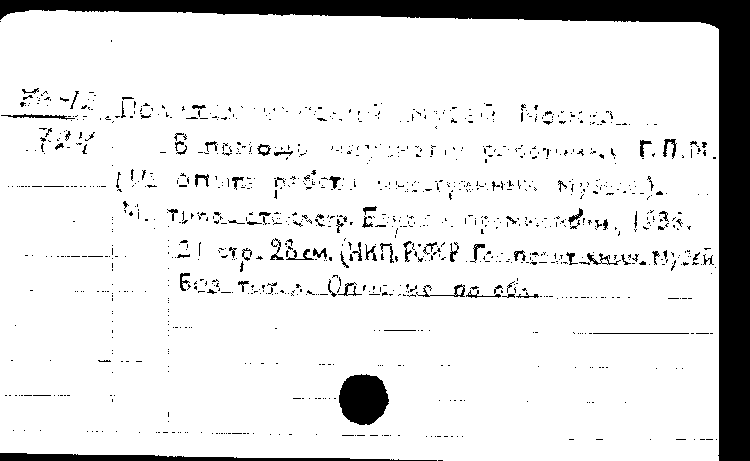 36-12
724
Политехнический музей Москва
В помощь научному работнику Г.П.М.
(Из опыта работы иностранных музеев).
М., типо. стеклогр. 1936.
21 стр. 28 см. (НКП. РСФСР Гос. политехнич. музей
Без тит. л. Описано по обл.